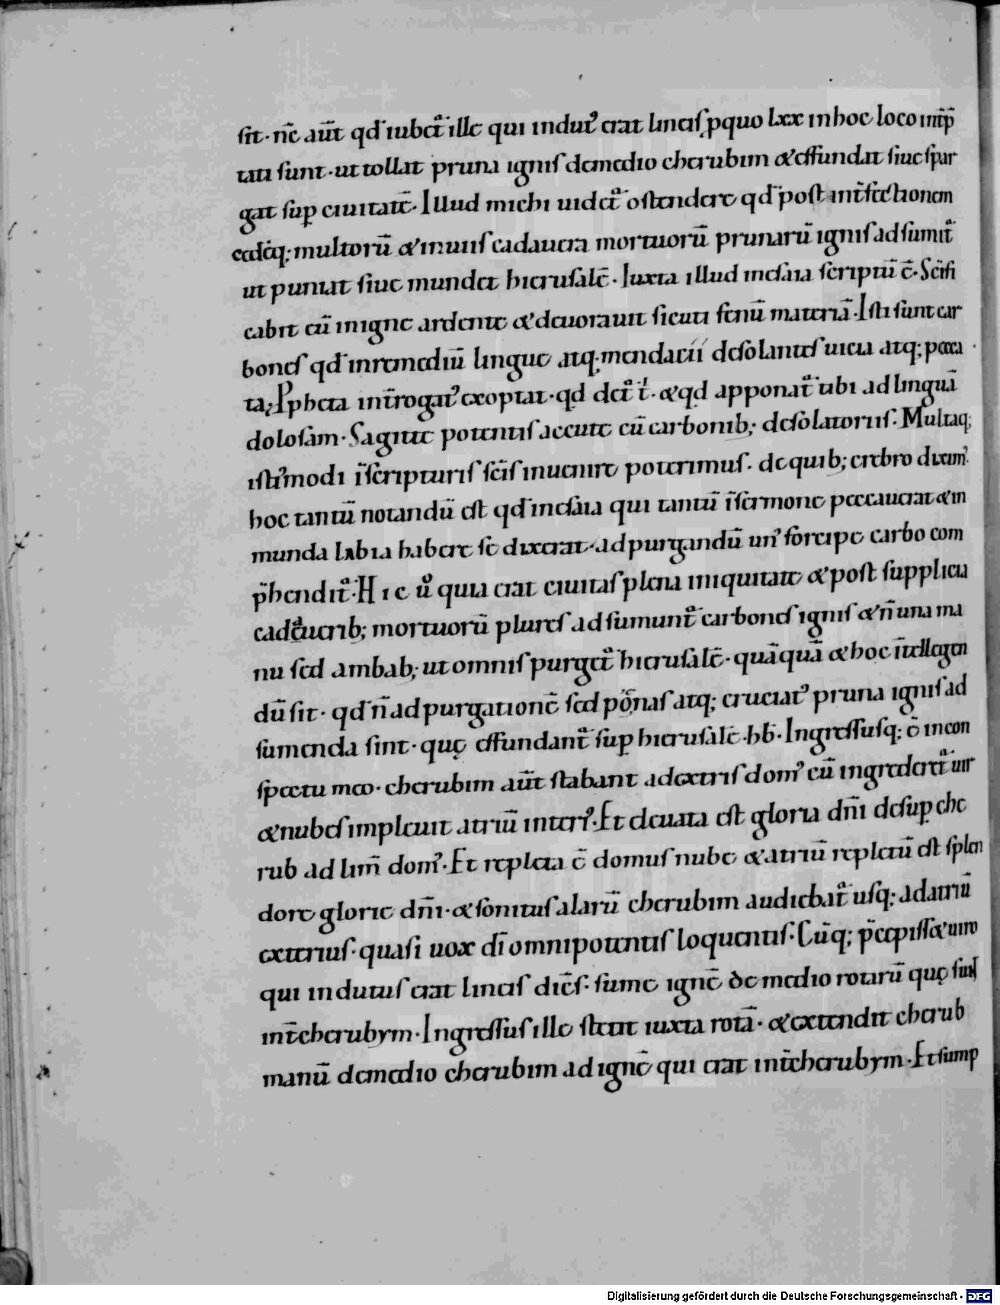 sit· nc̄ aut̄ qđ iubet᷑ ille qui indut᷒ erat lineis ꝓquo lxx inhoc loco int̄p̄
tati sunt· ut tollat pruna ignis demedio cherubim &effundat siue spar
gat suꝑ ciuitatē· Illud michi uidet᷑ ostendere qđ post int̄fectionem
multorū &inutis cadauera mortuorū prunarū ignis adsumit᷑
ut puniat siue mundet hierusalē· Iuxta illud inesaia scriptū ē· Sc̄ifi
cabit eū inigne ardente &deuorauit sicuti fenū materiā· Isti sunt car
bones qđ inremediū lingue atq; mendacii desolantes uicia atq; pecca
ta; Ꝓpheta int̄rogat᷒ exoptat· qđ det᷑ t̄· &qđ apponat᷑ tibi ad linguā
dolosam· Sagitte potentis accute cū carbonib; desolatoriis· Multaq;
isti᷒modi īscripturis sc̄is inuenire poterimus· de quib; crebro dixim᷒·
hoc tantū notandū est qđ inesaia qui tantū īsermone peccauerat &in
munda labia habere se dixerat· ad purgandū un᷒ forcipe carbo com
p̄hendit᷑· Hic ů quia erat ciuitas plena iniquitate &post supplicia
cadauerib; mortuorū plures adsumunt᷑ carbones ignis &n̄ una ma
nu sed ambab; ut omnis purget᷑ hierusalē· quāquā &hoc ītellegen
dū sit· qđ n̄ ad purgationē sed pęnas atq; cruciat᷒ pruna ignis ad
sumenda sint· quę effundant᷑ suꝑ hierusalē· hb̄· Ingressusq; ē incon
spectu meo· cherubim aut̄ stabant adextris dom᷒ cū ingrederet᷑ uir
&nubes impleuit atriū interi᷒· Et eleuata est gloria dn̄i desuꝑ che
rub ad lim̄ dom᷒· Et repleta ē domus nube &atriū repletū est splen
dore glorie dn̄i· &sonitus alarū cherubim audiebat᷑ usq; ad atriū
exterius· quasi uox dī omnipotentis loquentis· Cūq; p̄cepiss& uiro
qui indutus erat lineis dicēs· sume ignē de medio rotarū quę sunt
int̄ cherubym· Ingressus ille stetit iuxta rotā· &extendit cherub
manū demedio cherubim ad ignē qui erat int̄ cherubym· Et sump
Digitalisierung gefördert durch die Deutsche Forschungsgemeinschaft - DFG